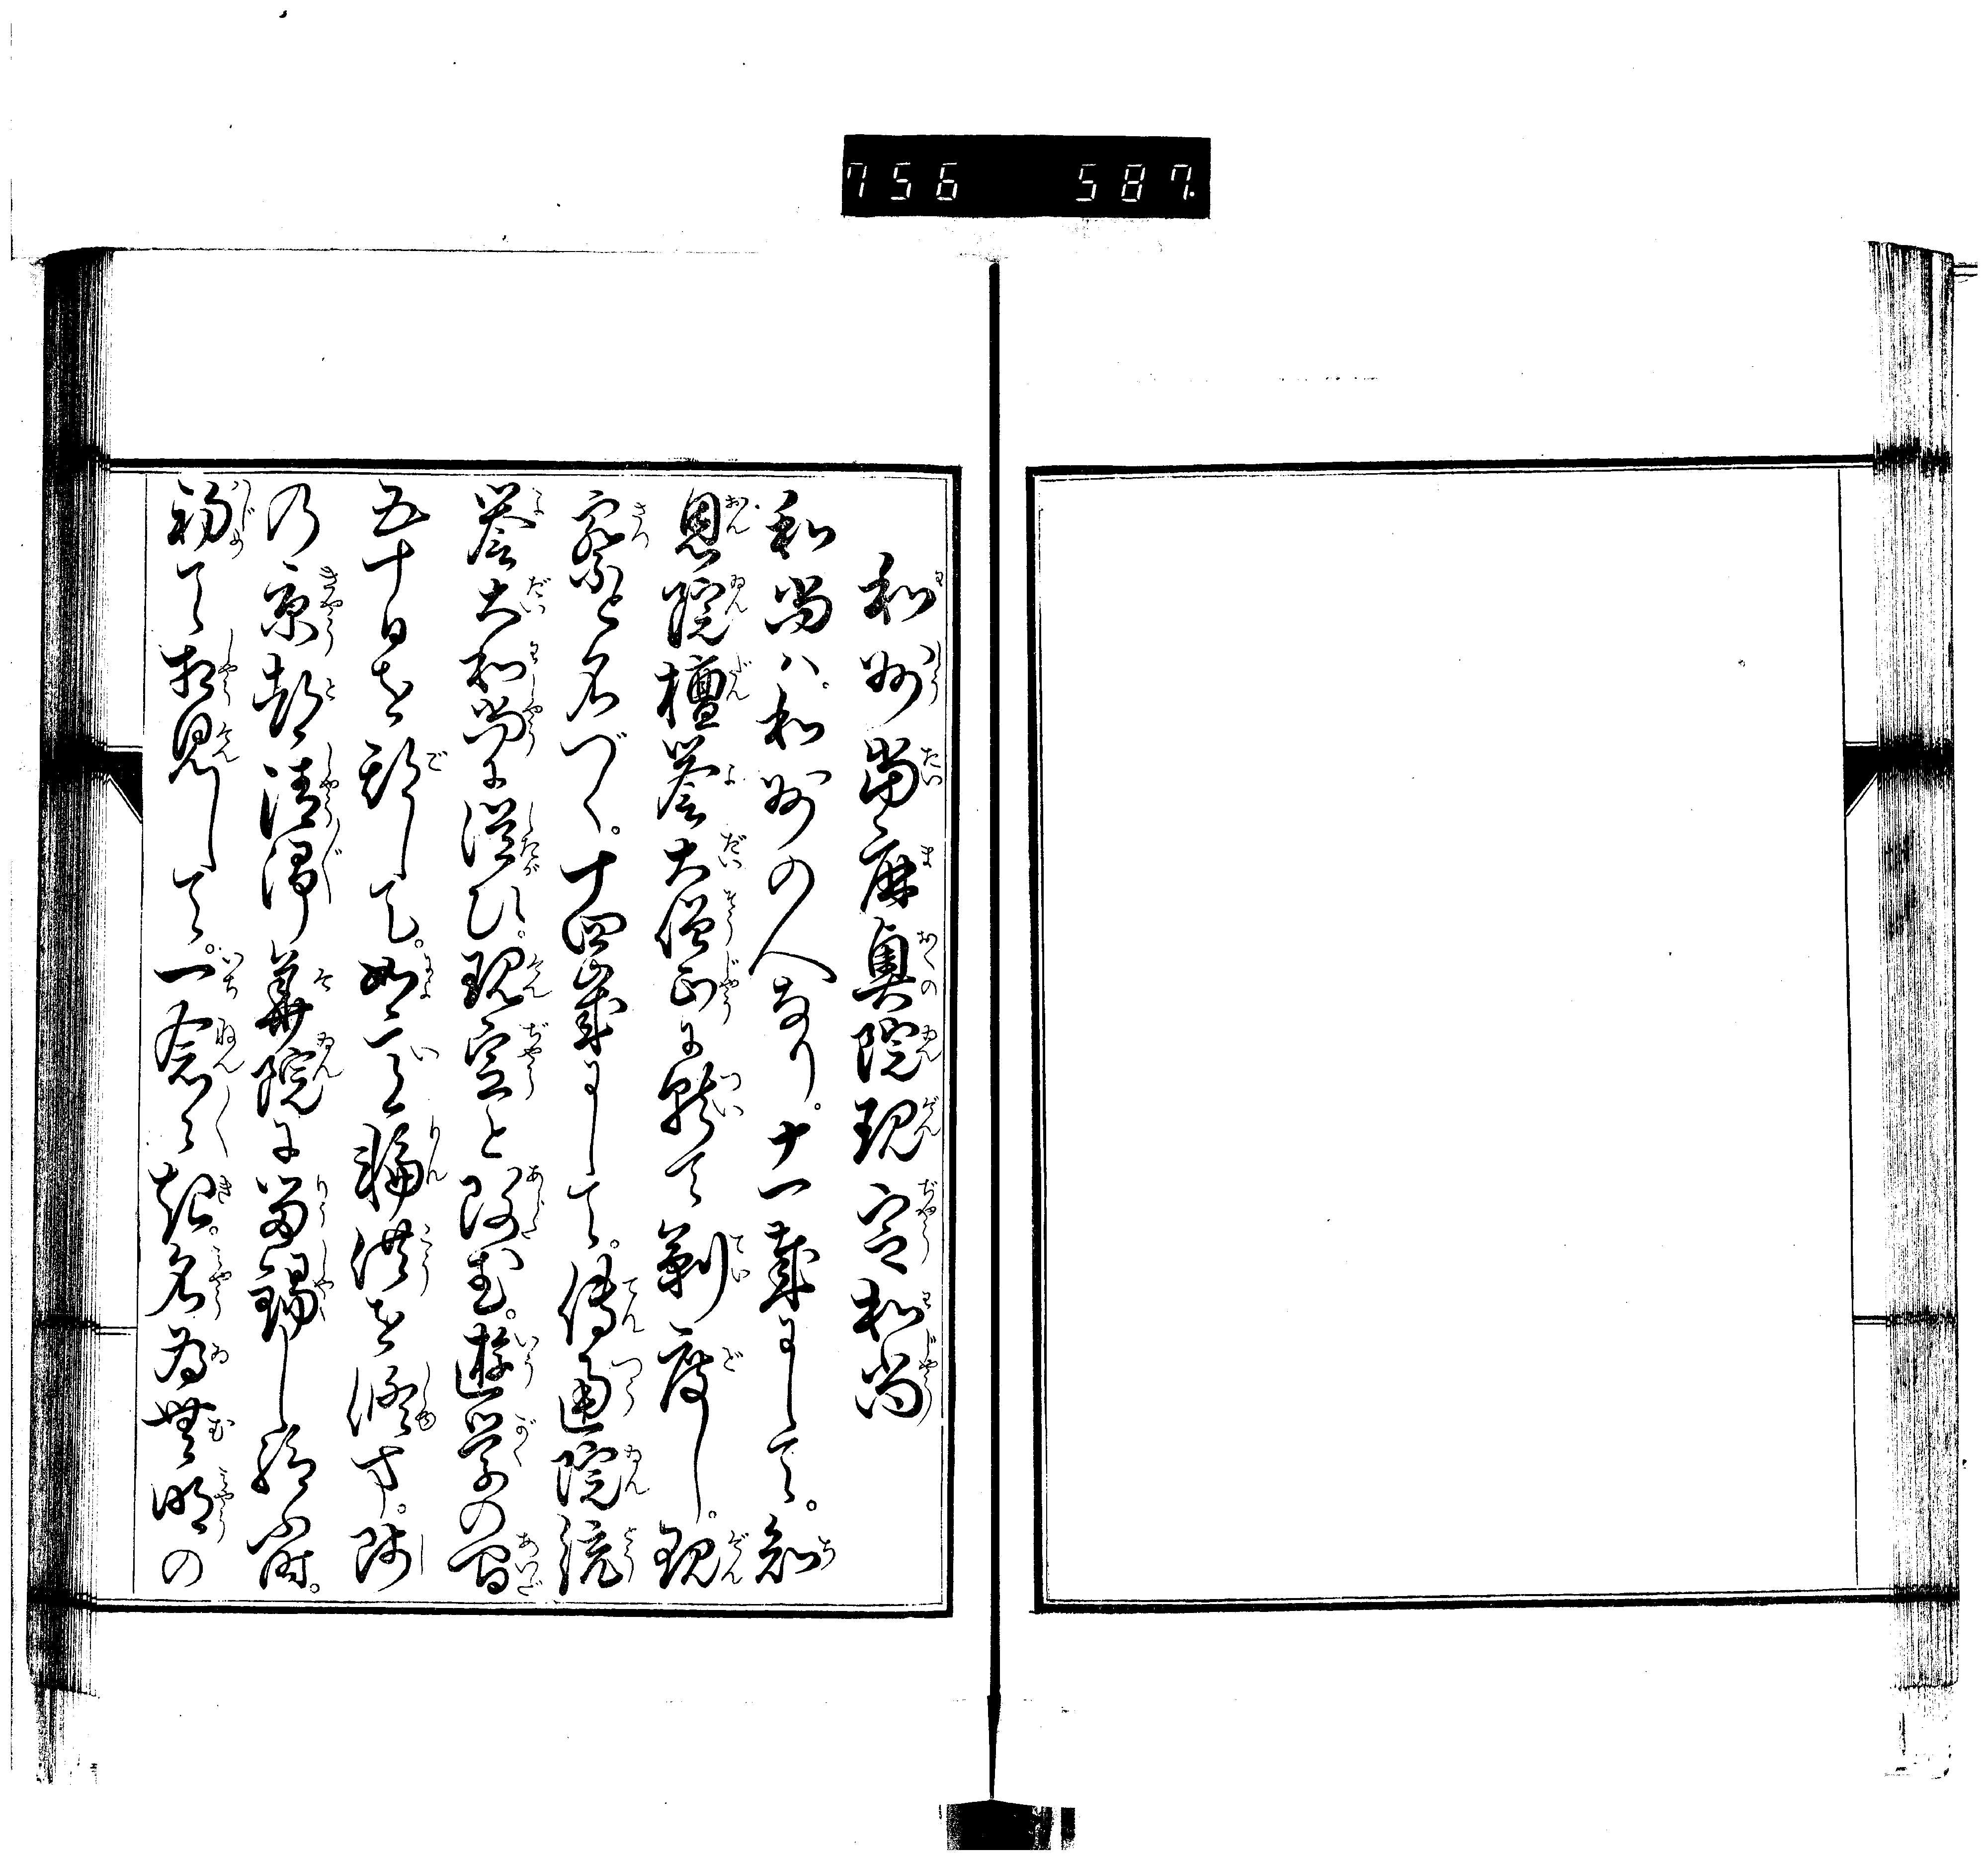 756 587.
和州當麻奥院現定和尚
和尚ハ。和州の人なり。十一歳にして。知
恩院檀誉大僧正に就て剃度し。現
察と名づく。十四歳にして。傳通院流
誉大和尚に従ひ。現定と改む。遊学の間
五十日を期して。如意輪供を修す。師
乃京都清浄華院に留錫し給ふ時。
初て相見して。一念て起。名為無明の